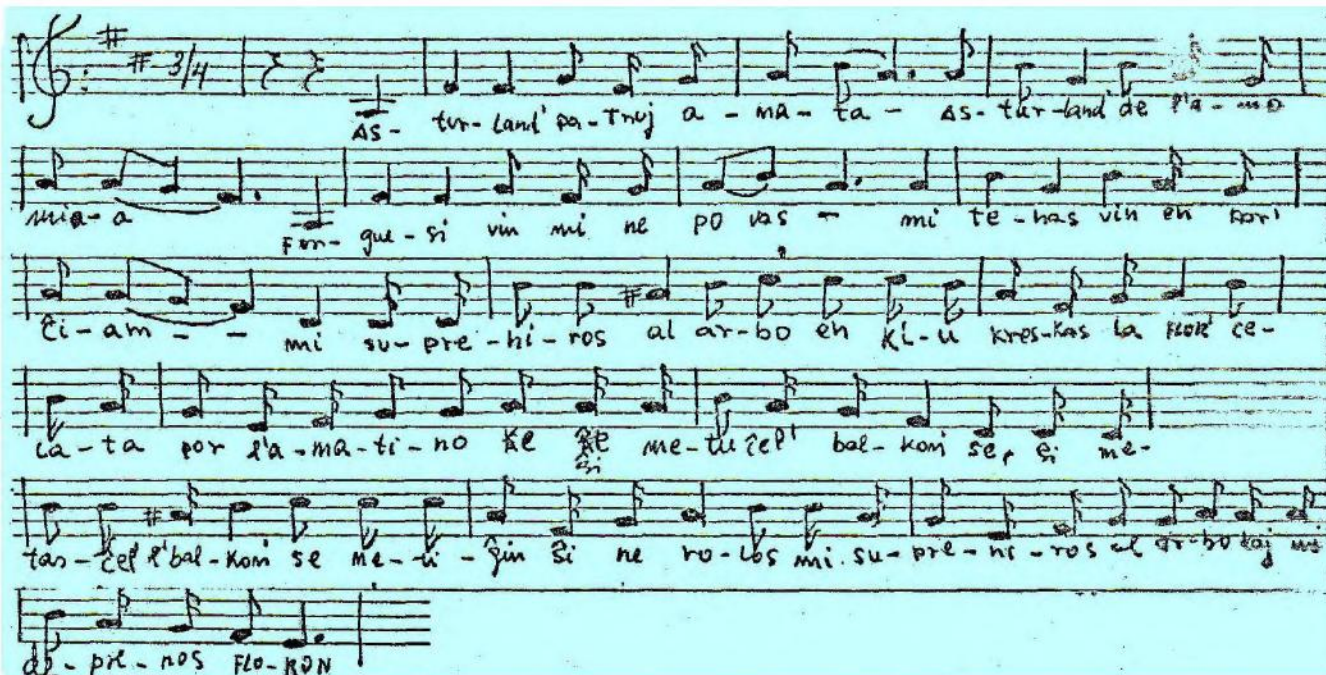 3/4
As- tur-land' pa-truj a-ma-ta- As-tur-land' de l'a-mo
mia-a For-gue-si vin mi ne po vas- mi te-has vin en kori
ĉi-am-- mi su-pre-hi-ros al ar-bo en ki-u kres-kas la flor' ce-
la-ta por l'a-ma-ti-no ke me-tu ĉel' bal-kon se, ŝi me-
ŝi
tas-ĉel l'bal-kon se me-ti-ĝin ŝi ne ro-los mi su-pre-hi-ros al ar-bo kaj mi
de-pre-nos FLO-RON